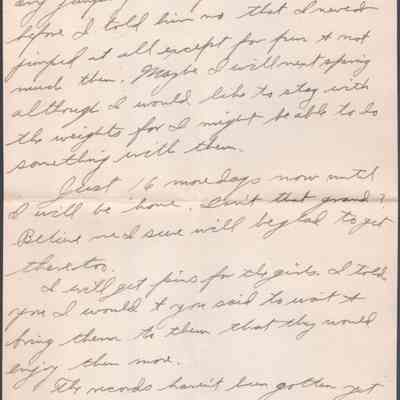 any
before I told him no that I never
jumped at all except for fun & not
much then. Maybe I will next spring
although I would like to stay with
the weights for I might be able to do
something with them.
Just 16 more days now until
I will be home. Isn't that grand?
Believe me I sure will be glad to get
there too.
I will get pins for the girls. I told
you I would & you said to wait &
bring them to them that they would
enjoy them more.
The records haven't been gotten yet